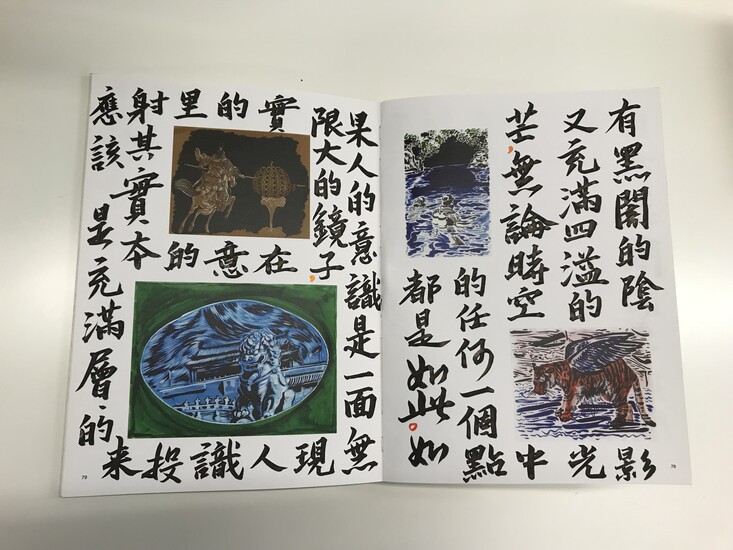 有黑闇的陰影
又充滿四溢的光
芒，無論時空中
的任何一個點
都是如此。如
果人的意識是一面無
限大的鏡子，現
實在人
的意識
里的投
射其實本來
應該是充滿層〻的
78
79